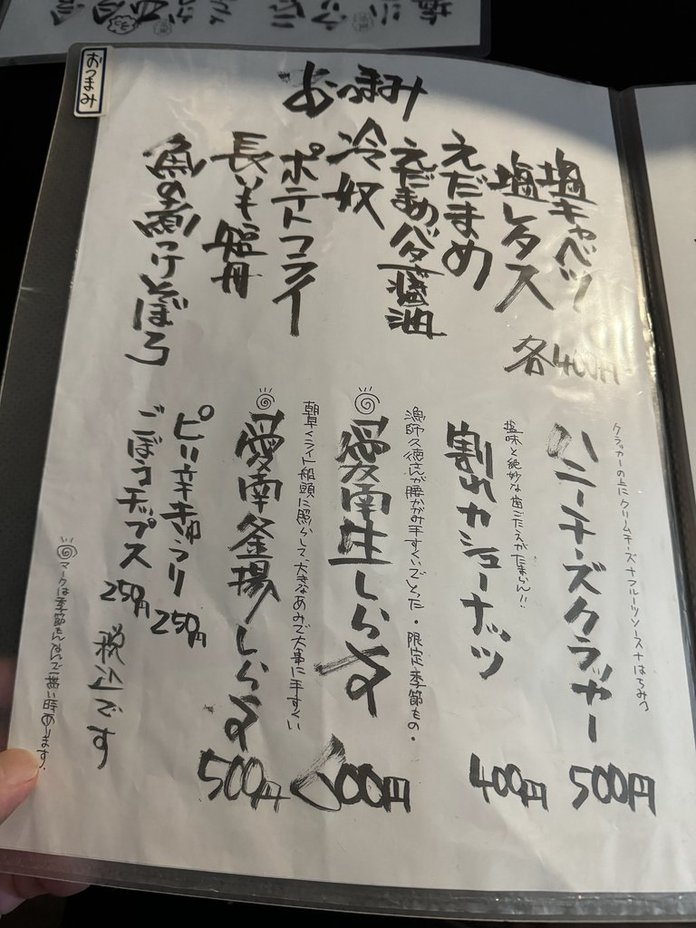 おつまみ
おつまみ
塩キャベツ
塩レタス
えだまめ
えだまめバター醤油
冷奴
ポテトフライ
長いも短冊
魚の煮つけとぼろ
各400円
クラッカーの上にクリームチーズ+フルーツソース+はちみつ
ハニーチーズクラッカー
500円
塩味と絶妙な歯ごたえがたまらん!!
割れカシューナッツ
400円
漁師久徳さんが腰かがみ手すくいでとった・限定季節もの・
愛南生しらす
600円
朝早くライト船頭に照らして、大きなあみで大事に手すくい
愛南釜揚しらす
500円
ピリ辛きゅうり
250円
ごぼうチップス
250円
税込です
マークは季節もんなんで無い時あります。